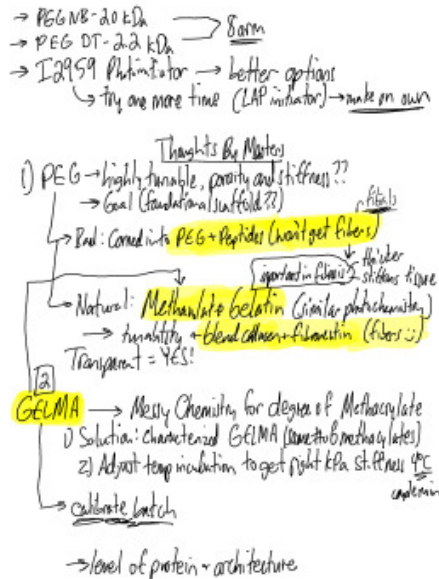 → PEGNB-20 kDa
→ PEG DT-2.2 kDa > 8arm
→ I2959 Photinitiator → better options
↳ try one more time (LAP initiator) → make on own
Thoughts By Masters
1) PEG → highly tunable, porosity and stiffness??
→ Goal (foundational scaffold??)
fibrils
→ Bad: Corned into PEG + Peptides (won't get fibers)
important in fibrosis? thicker stiffens tissue
→ Natural: Methacrylate Gelatin (similar photochemistry)
→ tunability + blend collagen + fibronectin (fibers :)
Transparent = YES!
2
GELMA → Messy Chemistry for degree of Methacrylate
1) Solution: characterized GELMA (methacrylates)
2) Adjust temp incubation to get right kPa stiffness 4°C
→ calibrate batch
→ level of protein + architecture